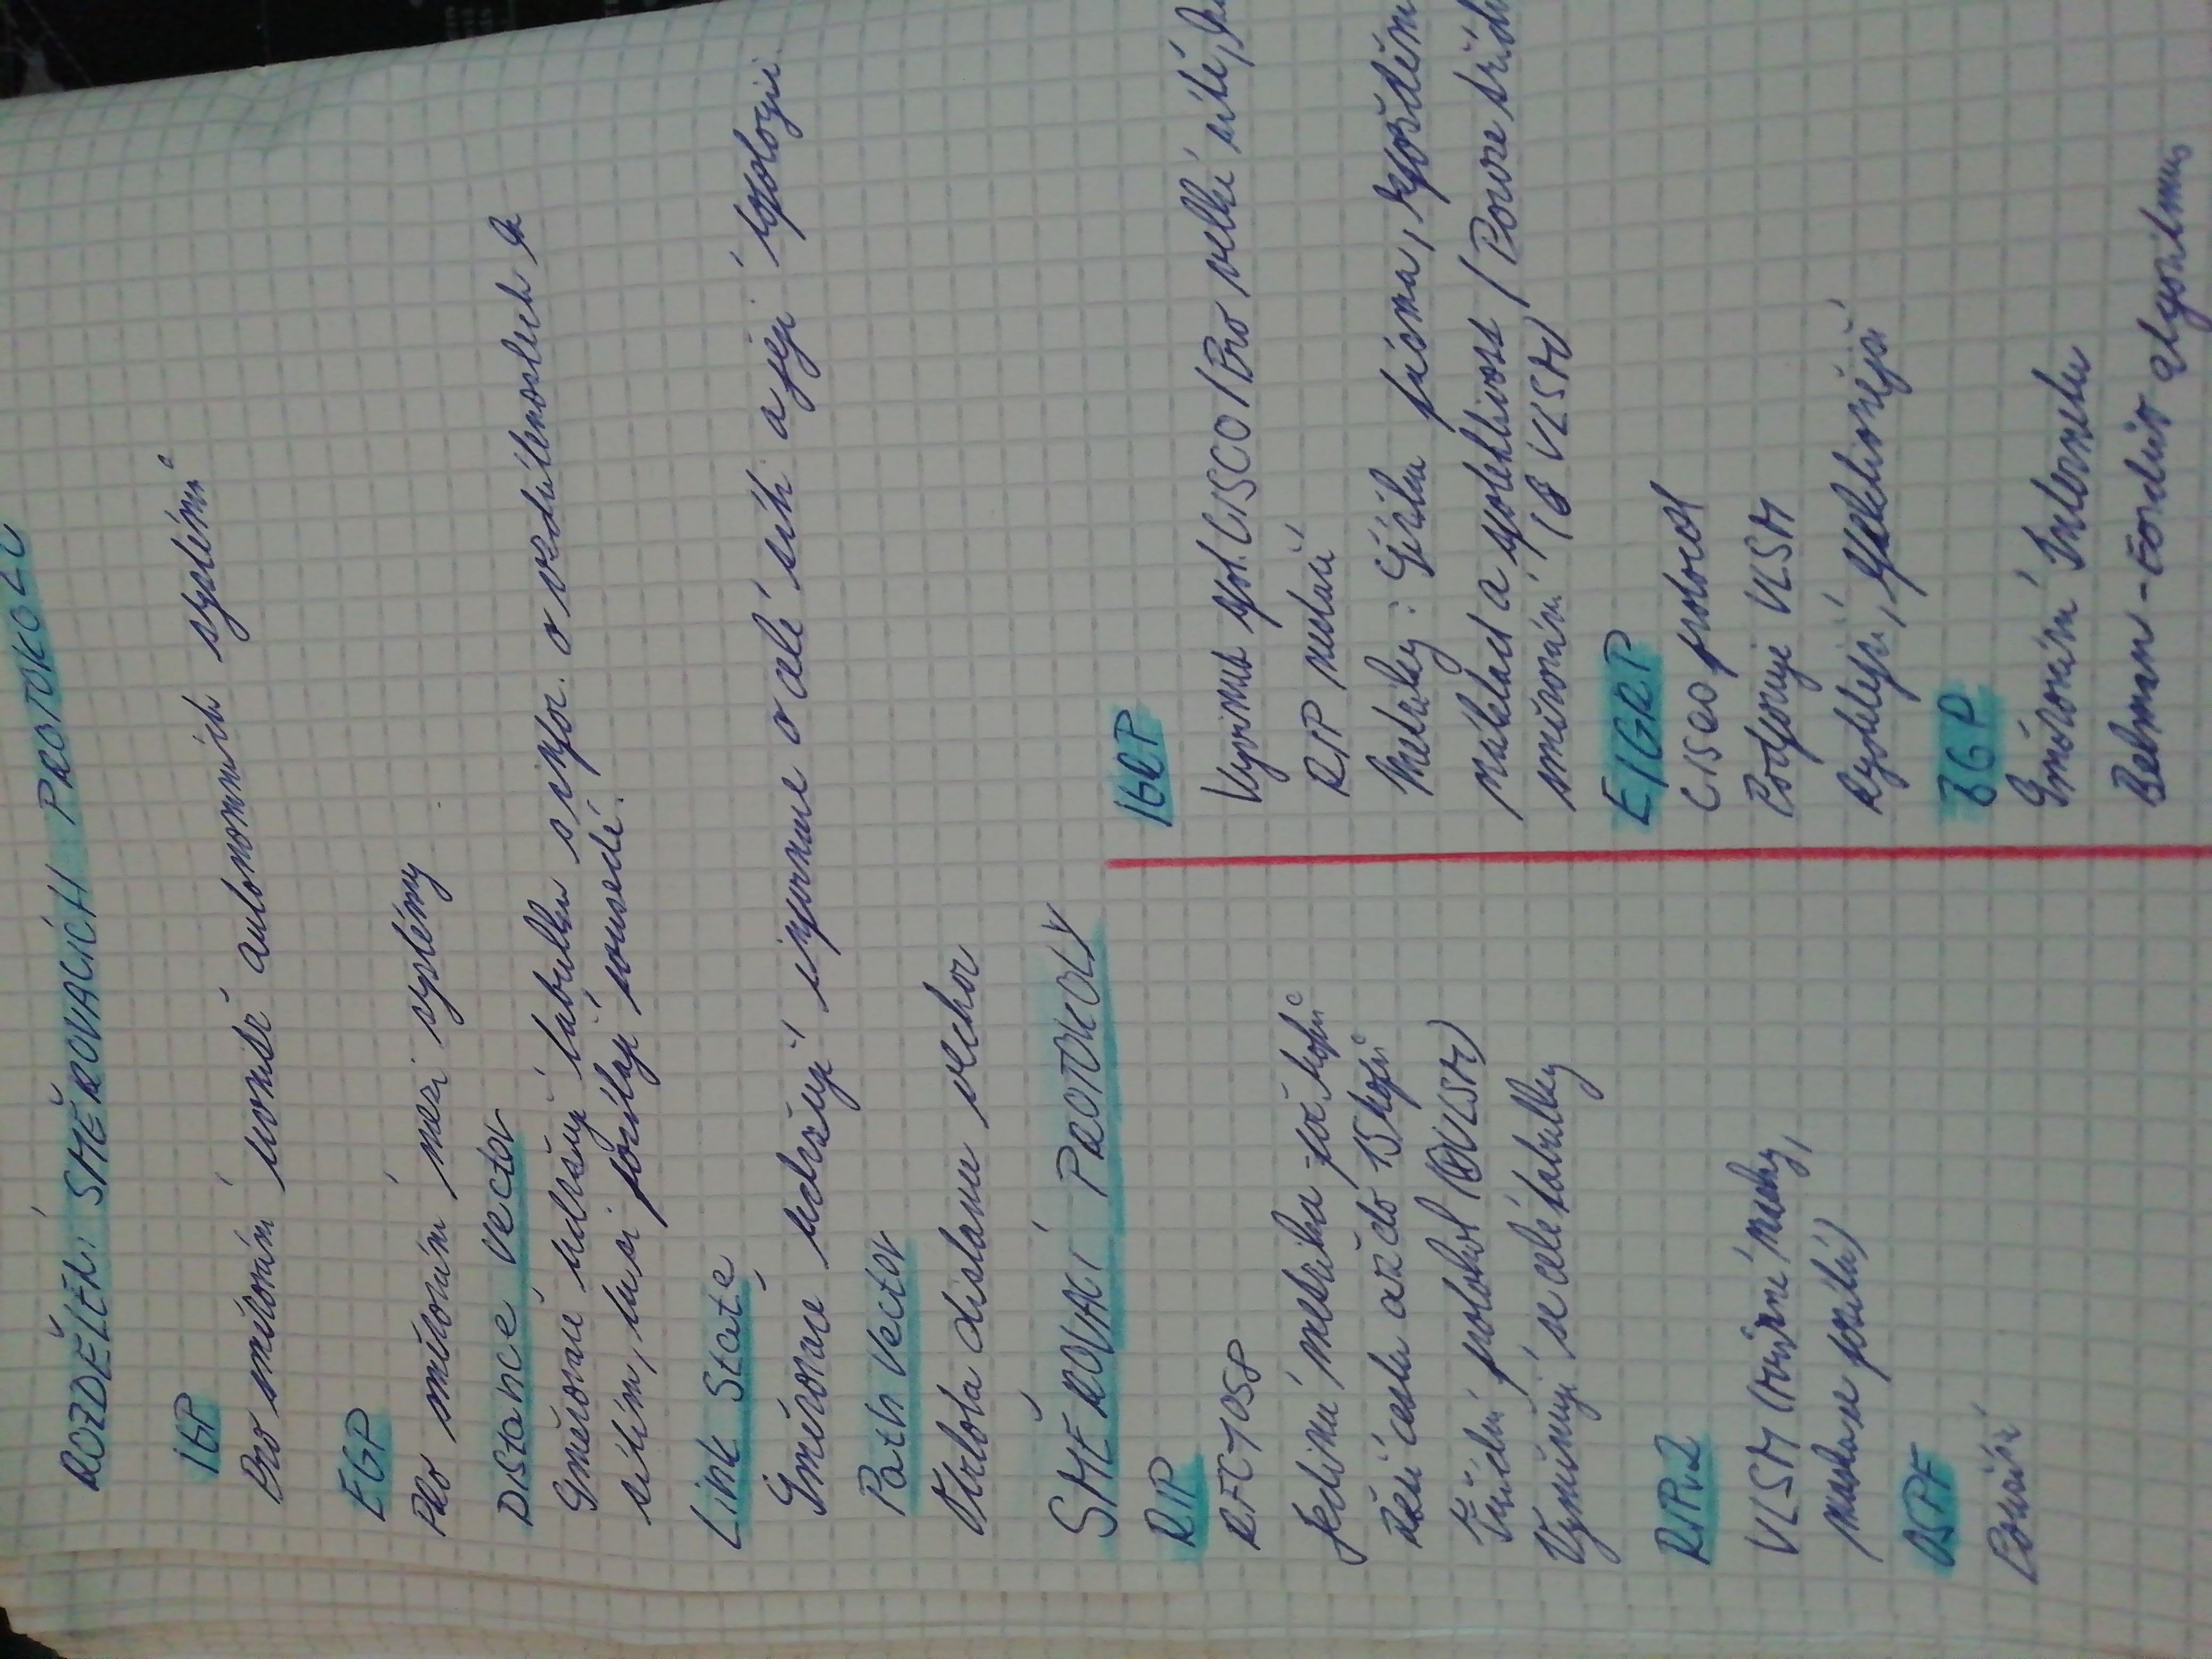 ROZDĚLENÍ SMĚROVACÍCH PROTOKOLŮ
IGP
Pro směrování uvnitř autonomních systémů
EGP
Pro směrování mezi systémy
Distance vector
Směrovače udržují tabulku s infor. o vzdálenostech k
sítím, kusi posílají sousedé.
Link State
Směrovače udržují informace o celé síti a její topologii.
Path Vector
Tvrba distanc vector
SMĚROVACÍ PROTOKOLY
RIP
RFC 1058
Jediná metrika počet hopů
Řeší cestu až do 15 hopů
Třídní protokol (0 VLSM)
Vyměňují se celé tabulky
RIPv2
VLSM (různé masky,
maska se posílá)
OSPF
IGRP
Vyvinut spol. CISCO (Pro velké sítě, kde
RIP nestačí
Metriky: Šířka pásma, zpoždění
náklad a spolehlivost (Pouze třídní
směrování (0 VLSM)
EIGRP
CISCO protocol
Podporuje VLSM
Rychlejší, efektivnější
BGP
Směrování Internetu
Belman-Fordův algoritmus